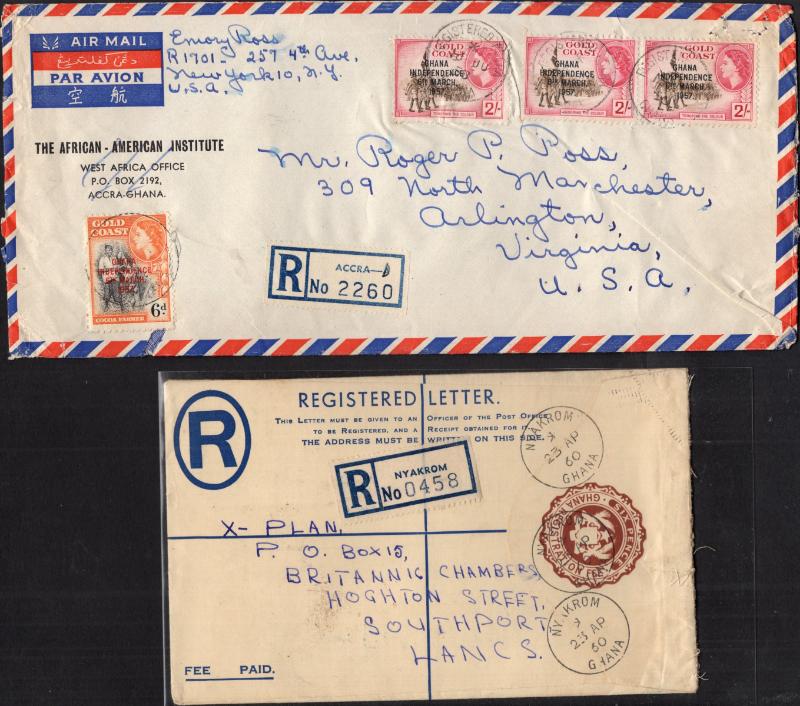 AIR MAIL
PAR AVION
空 航
Emory Ross
R 1701 - 257 4th Ave.
New York 10, N.Y.
U.S.A.
THE AFRICAN - AMERICAN INSTITUTE
WEST AFRICA OFFICE
P.O. BOX 2192,
ACCRA-GHANA.
GOLD COAST
GHANA
INDEPENDENCE
6TH MARCH
1957
2/-
GOLD COAST
GHANA
INDEPENDENCE
6TH MARCH
1957
2/-
GOLD COAST
GHANA
INDEPENDENCE
6TH MARCH
1957
2/-
REGISTERED
Mr. Roger P. Ross,
309 North Manchester,
Arlington,
Virginia,
U. S. A.
GOLD
COAST
GHANA
INDEPENDENCE
6TH MARCH
1957
6d
COCOA FARMER
R
ACCRA
No 2260
R
REGISTERED LETTER.
THIS LETTER MUST BE GIVEN TO AN OFFICER OF THE POST OFFICE
TO BE REGISTERED, AND A RECEIPT OBTAINED FOR IT.
THE ADDRESS MUST BE WRITTEN ON THIS SIDE.
R
NYAKROM
No 0458
NYAKROM
23 AP
60
GHANA
GHANA REGISTRATION FEE
SIX PENCE
X- PLAN,
P. O. BOX 15,
BRITANNIC CHAMBERS,
HOGHTON STREET,
SOUTHPORT
LANCS.
NYAKROM
23 AP
60
GHANA
FEE PAID.